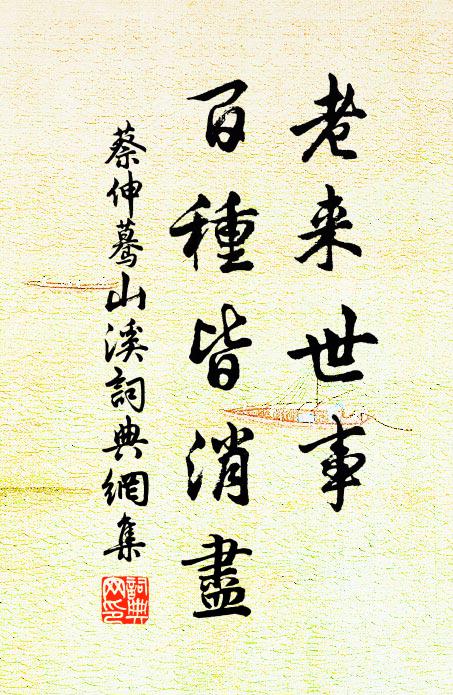 老来世事
百種皆消盡
蔡伸驀山溪詞典網集
詞典网印